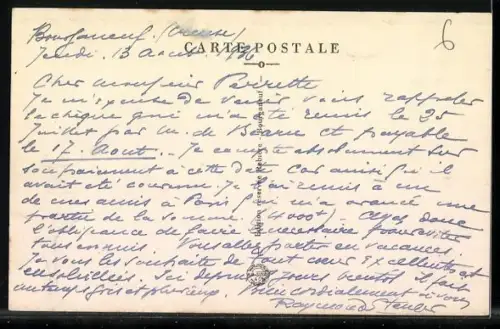 Bourganeuf (Creuse)
Jeudi, 13 Août 1936
CARTE POSTALE
6
Cher Monsieur Peirette
Je m'excuse de venir vous rappeler
le chèque qui m'a été remis le 25
Juillet par M. de Bearn et payable
le 17 Août. Je compte absolument sur
son paiement à cette date car ainsi qu'il
avait été convenu. Je l'ai remis à un
de mes amis à Paris qui m'a avancé une
partie de la somme. (4000f) Ayez donc
l'obligeance de faire le nécessaire pour éviter
tous ennuis. Vous allez partir en vacances.
Je vous les souhaite de tout cœur excellentes et
ensoleillées. Ici depuis jours bientôt il fait
un temps gris et pluvieux. Bien cordialement à vous
Raymond